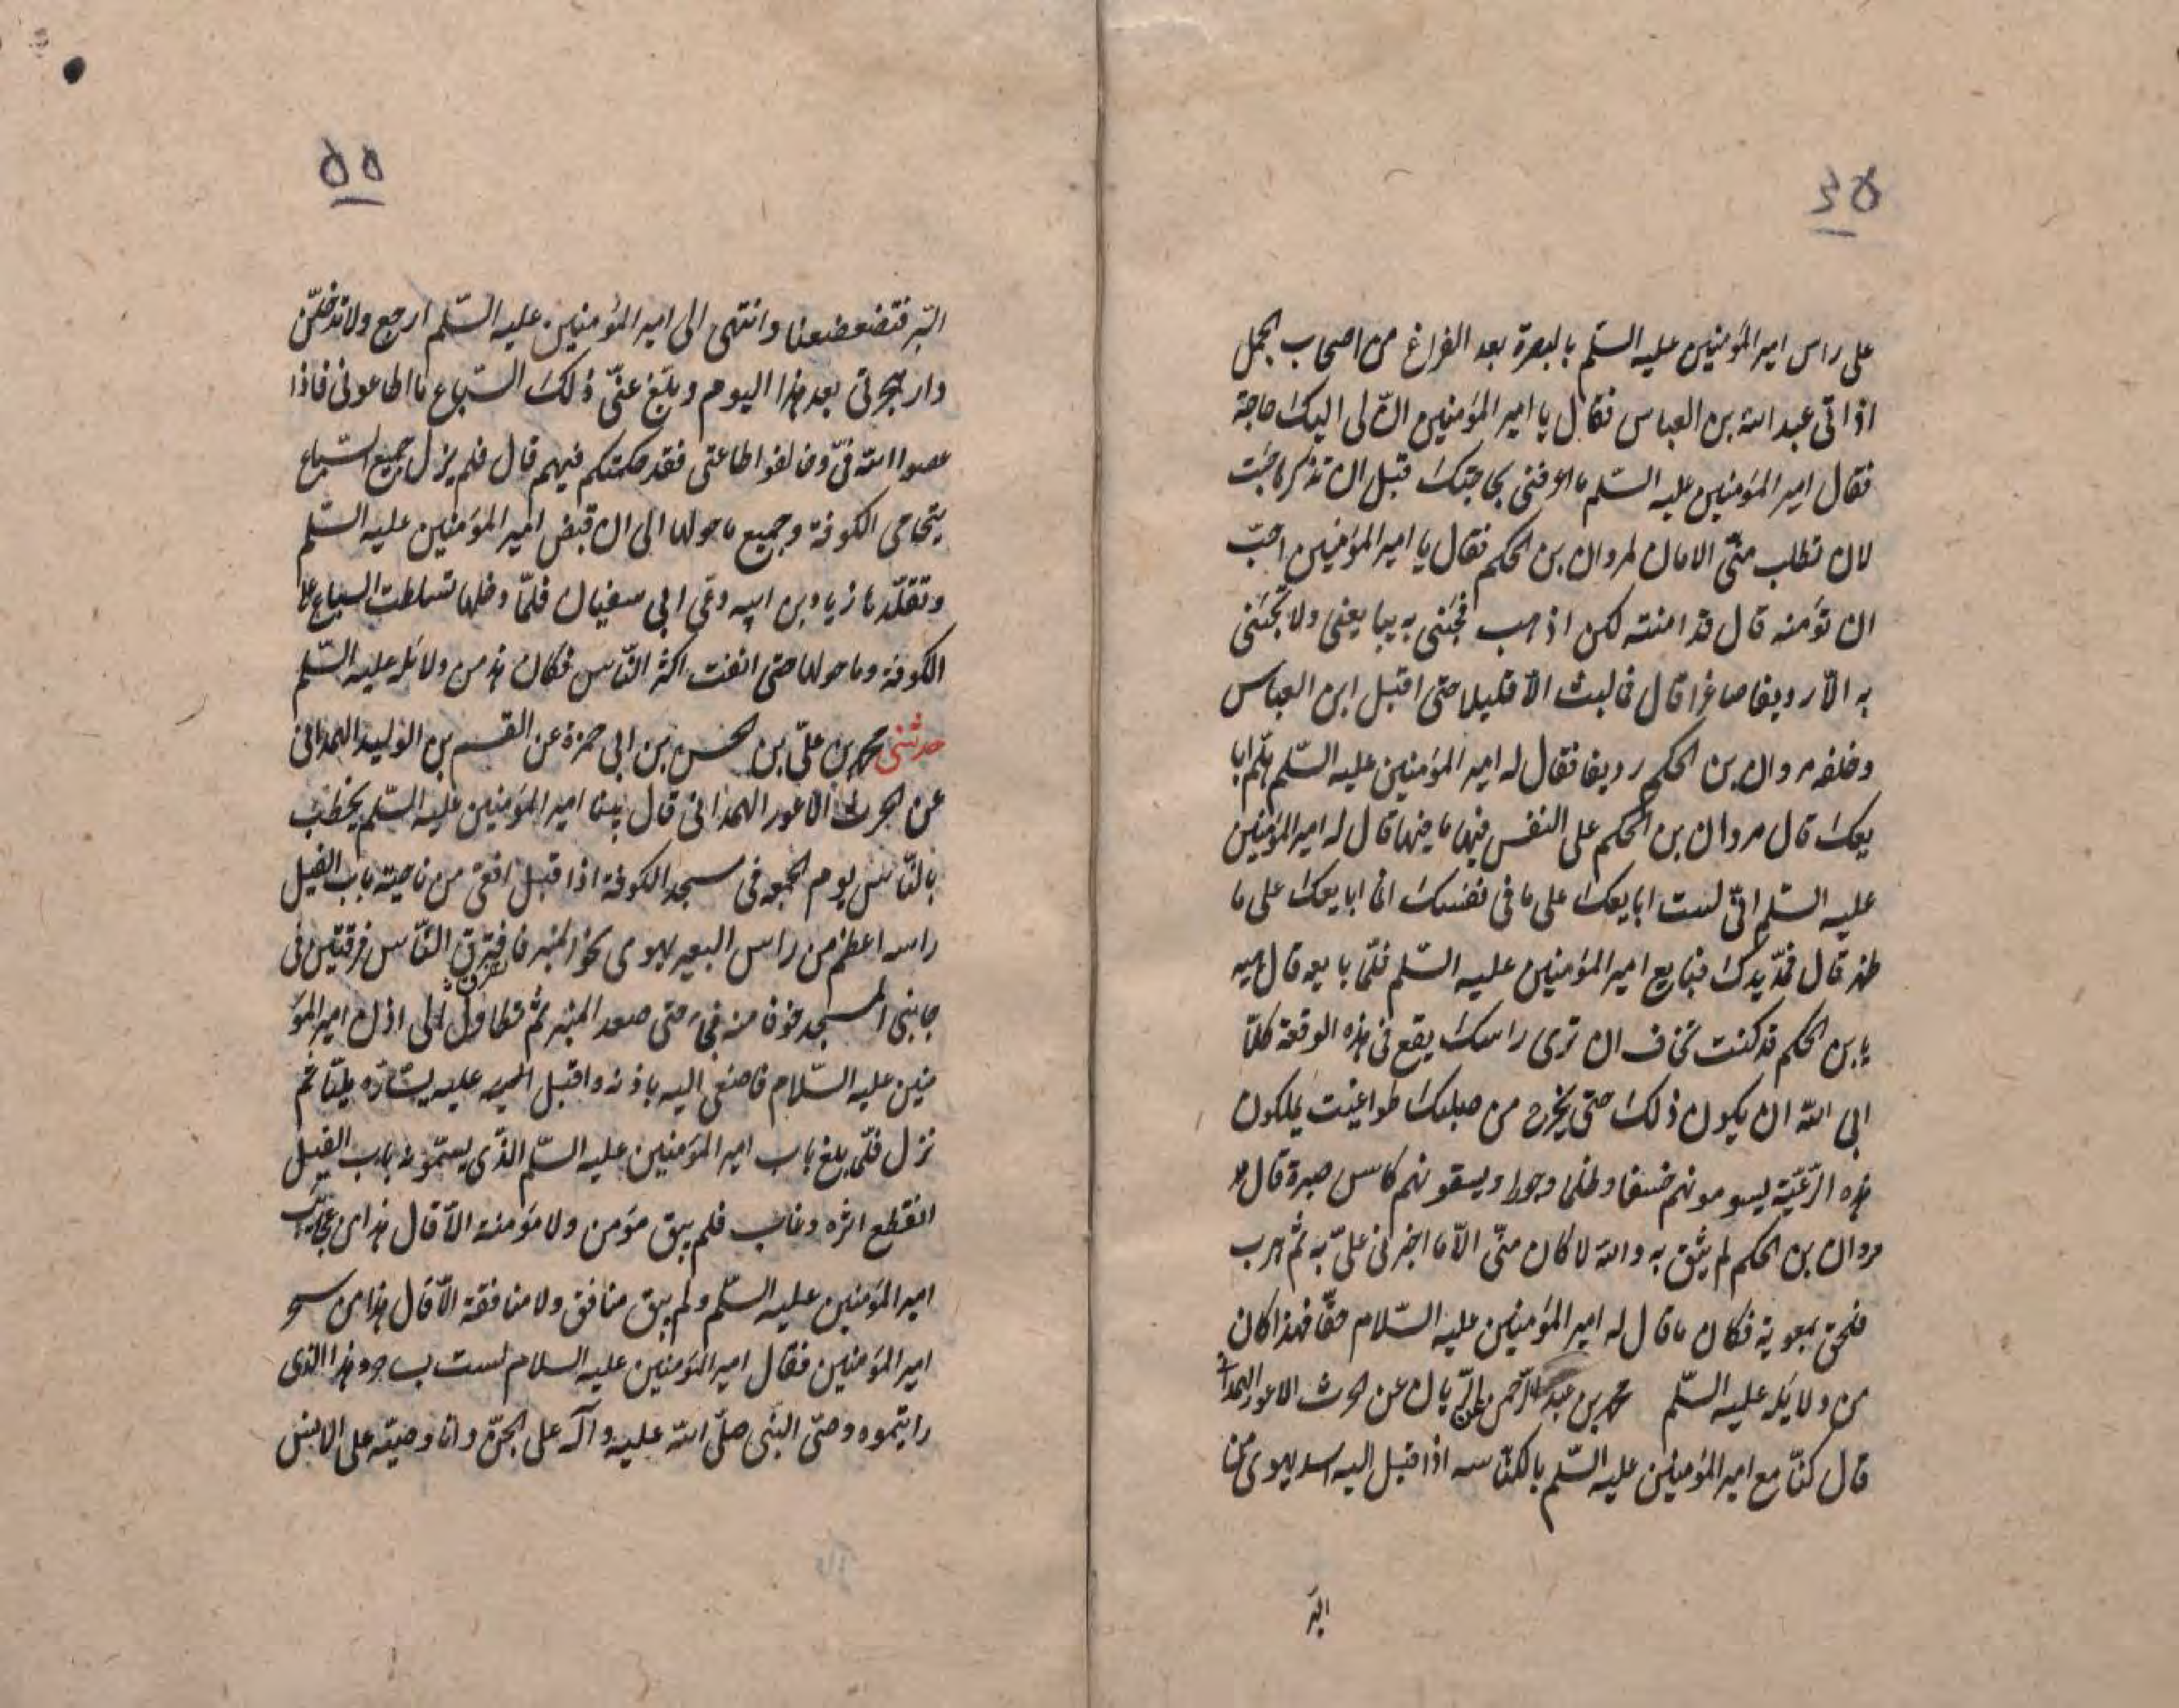 ٥٤
على راس امير المؤمنين عليه السّلم بالبصرة بعد الفراغ من اصحاب الجمل
اذ اتى عبد الله بن العباس فقال يا امير المؤمنين انّ لى اليك حاجة
فقال امير المؤمنين عليه السّلم ما اعرفنى بحاجتك قبل ان تذكر ما جئت
لان تطلب منّى الامان لمروان بن الحكم فقال يا امير المؤمنين احبّ
ان تؤمنه قال قد امنته لكن اذهب فجئنى به يبايعنى ولا تجئنى
به الّا رديفا صاغرا قال فما لبث الّا قليلا حتى اقبل ابن العباس
وخلفه مروان بن الحكم رديفا فقال له امير المؤمنين عليه السّلم هلّم ابا
يعك قال مروان بن الحكم على النفس فيها ما فيها قال له امير المؤمنين
عليه السّلم انّى لست ابايعك على ما فى نفسك انا ابايعك على ما
ظهر قال فمدّ يدك فبايع امير المؤمنين عليه السّلم فلمّا بايعه قال هيه
يا بن الحكم قد كنت تخاف ان ترى راسك يقع فى هذه الوقعة كلّا
ابى الله ان يكون ذلك حتى يخرج من صلبك طواغيت يملكون
هذه الرّعيّة يسومونهم خسفا وظلما وجورا ويسقونهم كاس صبرة قال
مروان بن الحكم لم يثق به والله لا كان منّى الّا ما اخبرنى علىّ به ثم هرب
فلحق بمعوية فكان ما قال له امير المؤمنين عليه السّلام حقّا فهذا كان
من دلايله عليه السّلم محمد بن عبد الرّحمن عن الحرث الاعور الهمدانى
قال كنّا مع امير المؤمنين عليه السّلم بالكنّاسه اذ اقبل اليه اسد يهوى من
البر
٥٥
البّر فتضعضعنا وانتهى الى امير المؤمنين عليه السّلم ارجع ولا تدخلنّ
دار هجرتى بعد هذا اليوم وبلّغ عنّى ذلك السّباع ما اطاعونى فاذا
عصوا الله فىّ وخالفوا طاعتى فقد حكمتكم فيهم قال فلم يزل جميع السّباع
يتحامى الكوفة وجميع ما حولها الى ان قبض امير المؤمنين عليه السّلم
وتقلّدها زياد بن ابيه دعى ابى سفيان فلمّا دخلها تسلطت السباع على
الكوفة وما حولها حتى افنت اكثر النّاس فكان هذ من دلائله عليه السّلم
حدثنى محمد بن علىّ بن الحسن بن ابى حمزة عن القسم بن الوليد الهمدانى
عن الحرث الاعور الهمدانى قال بينا امير المؤمنين عليه السّلم يخطب
بالنّاس يوم الجمعه فى مسجد الكوفة اذ اقبل افعى من ناحية باب الفيل
راسه اعظم من راس البعير يهوى نحو المنبر فافترق النّاس فرقتين فى
جانبى المسجد خوفا منه فجىء حتى صعد المنبر ثم تطاول الى اذن امير المؤ
منين عليه السّلام فاصغى اليه باذنه واقبل اليه عليه يسّارّه مليّا ثم
نزل فلمّا بلغ باب امير المؤمنين عليه السّلم الذّى يسمّونه باب الفيل
انقطع اثره وغاب فلم يبق مؤمن ولا مؤمنة الّا قال هذا من عجايب
امير المؤمنين عليه السّلم ولم يبق منافق ولا منافقة الّا قال هذا من سحر
امير المؤمنين فقال امير المؤمنين عليه السلام لست بساحر وهذا الذى
رايتموه وصىّ النبى صلّى الله عليه وآله على الجنّ وانا وصيّه على الانس